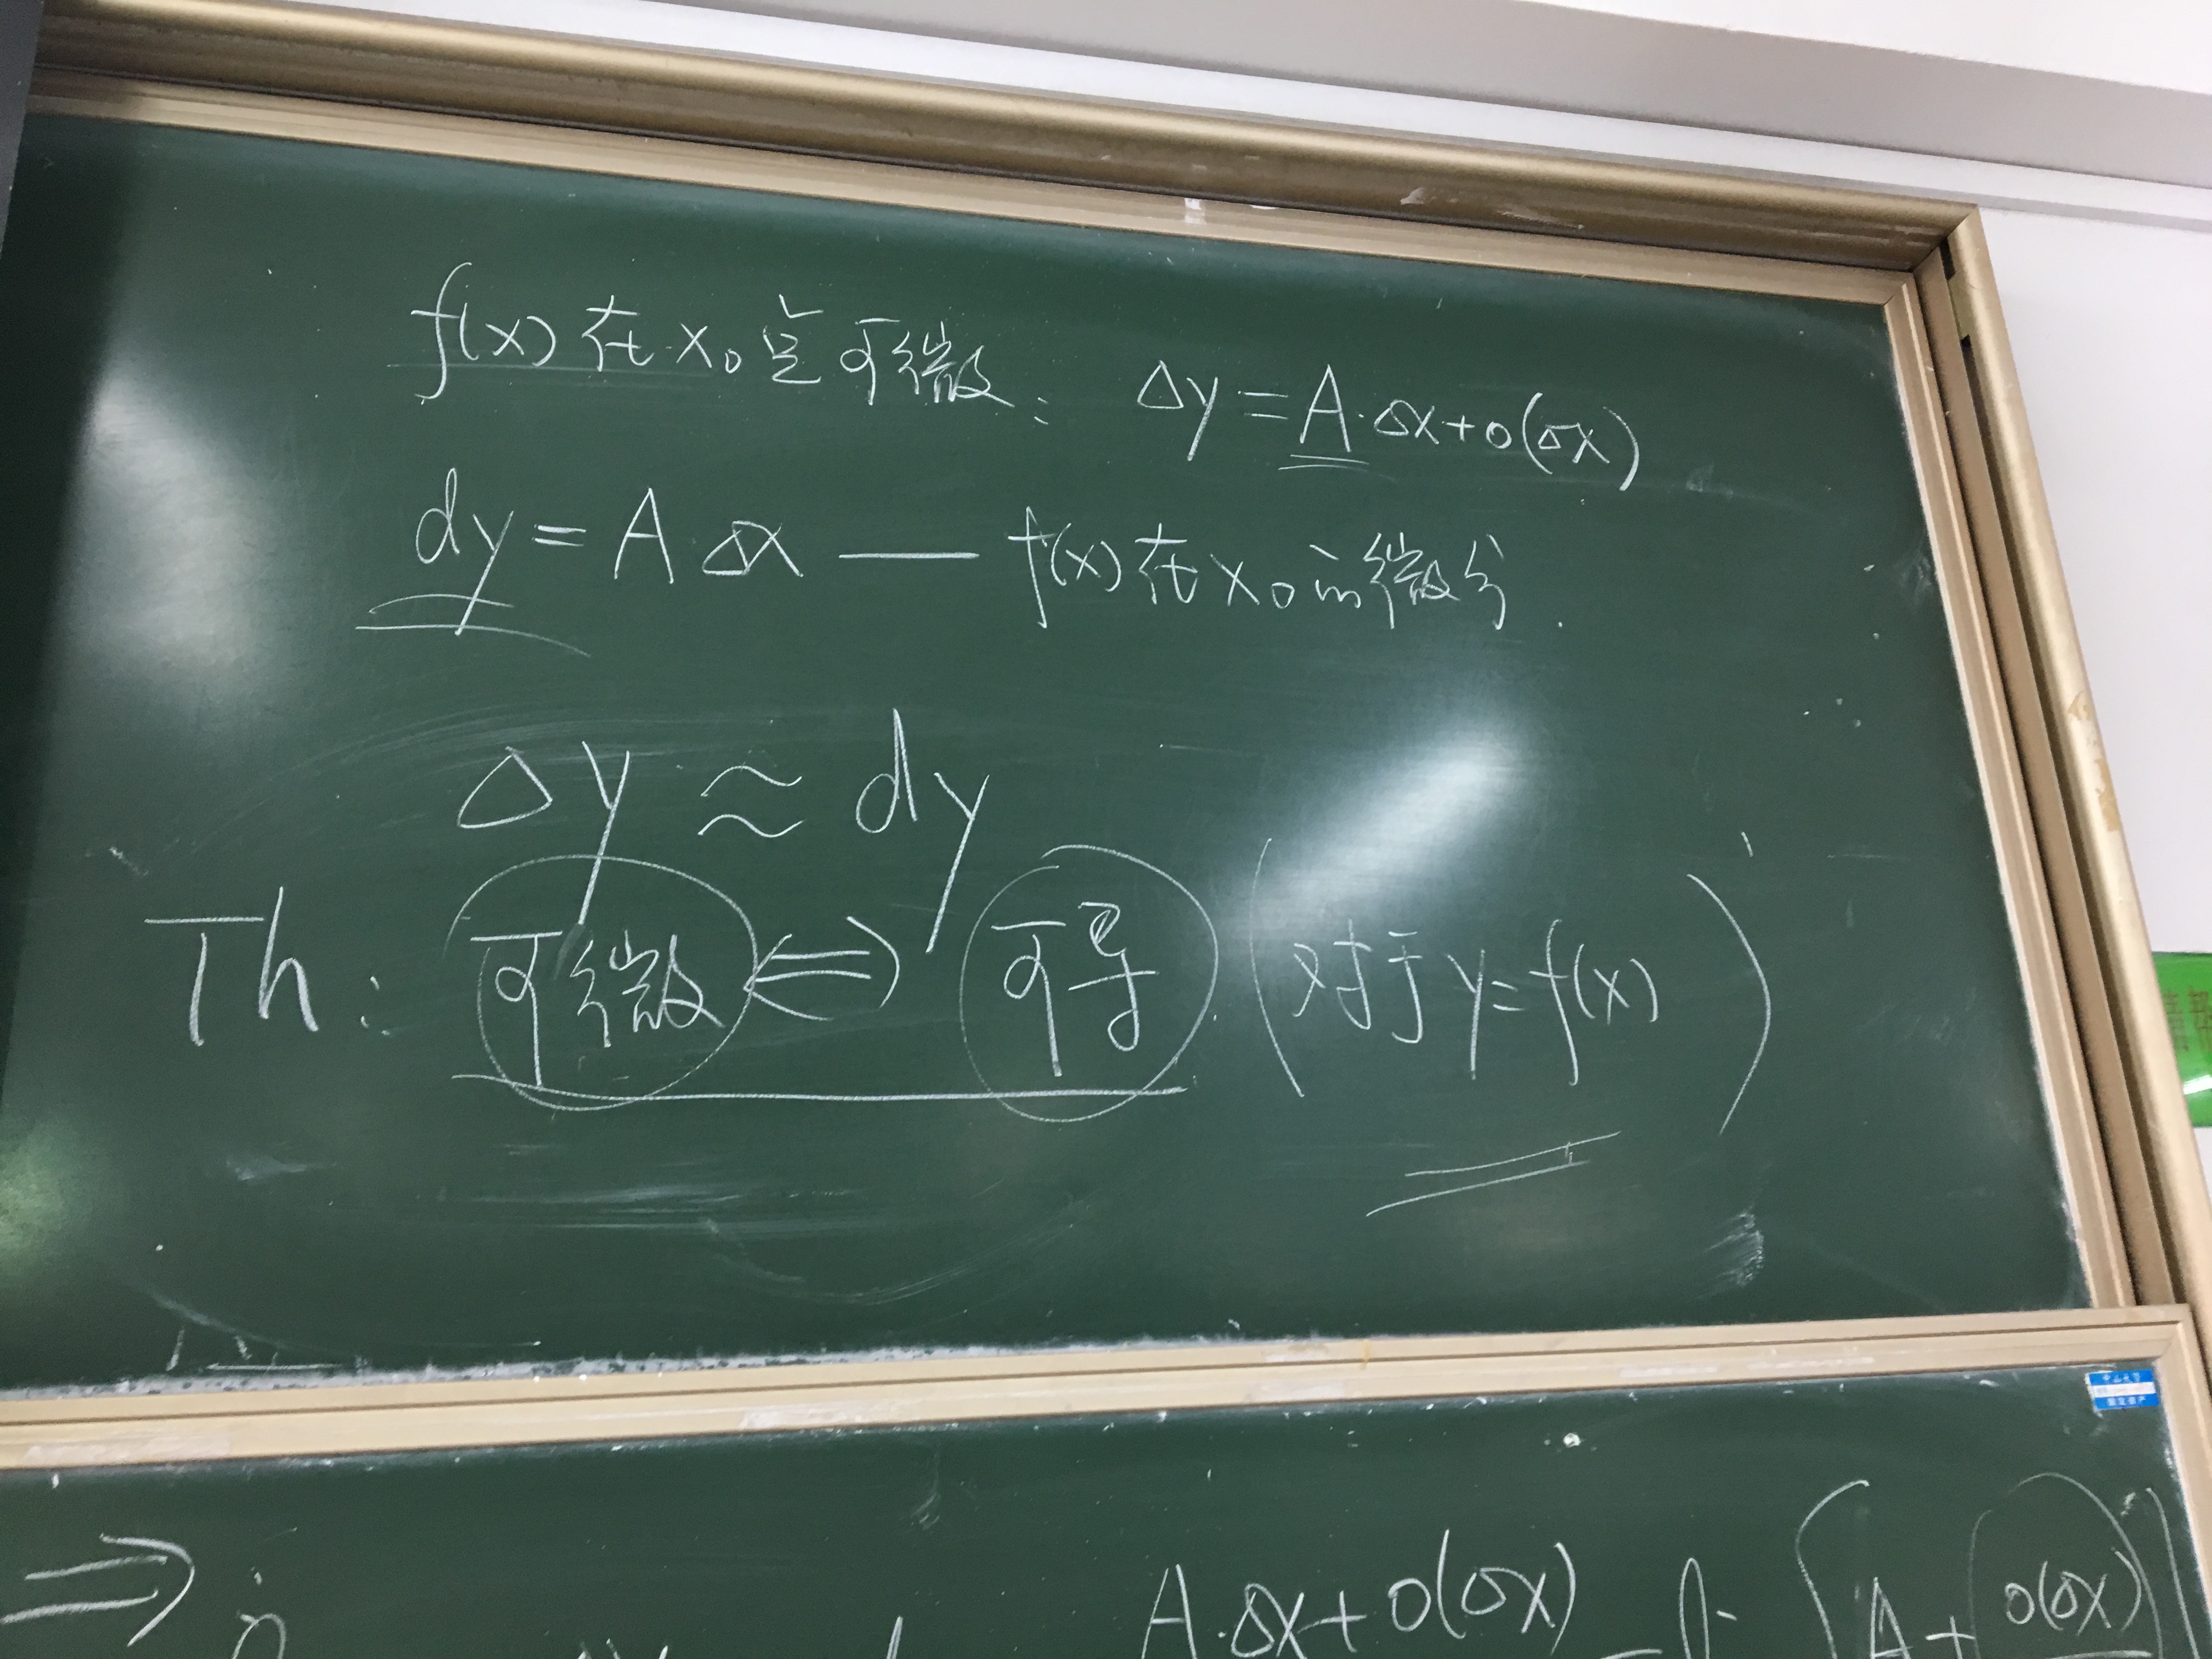 f(x) 在 x₀ 是可微: Δy = A·Δx + o(Δx)
dy = AΔx — f(x) 在 x₀ 的微分.
Δy ≈ dy
Th: 可微 ⟺ 可导 (对于 y = f(x))
中山大学
固定资产
⇒
A·Δx + o(Δx)
A + o(Δx)